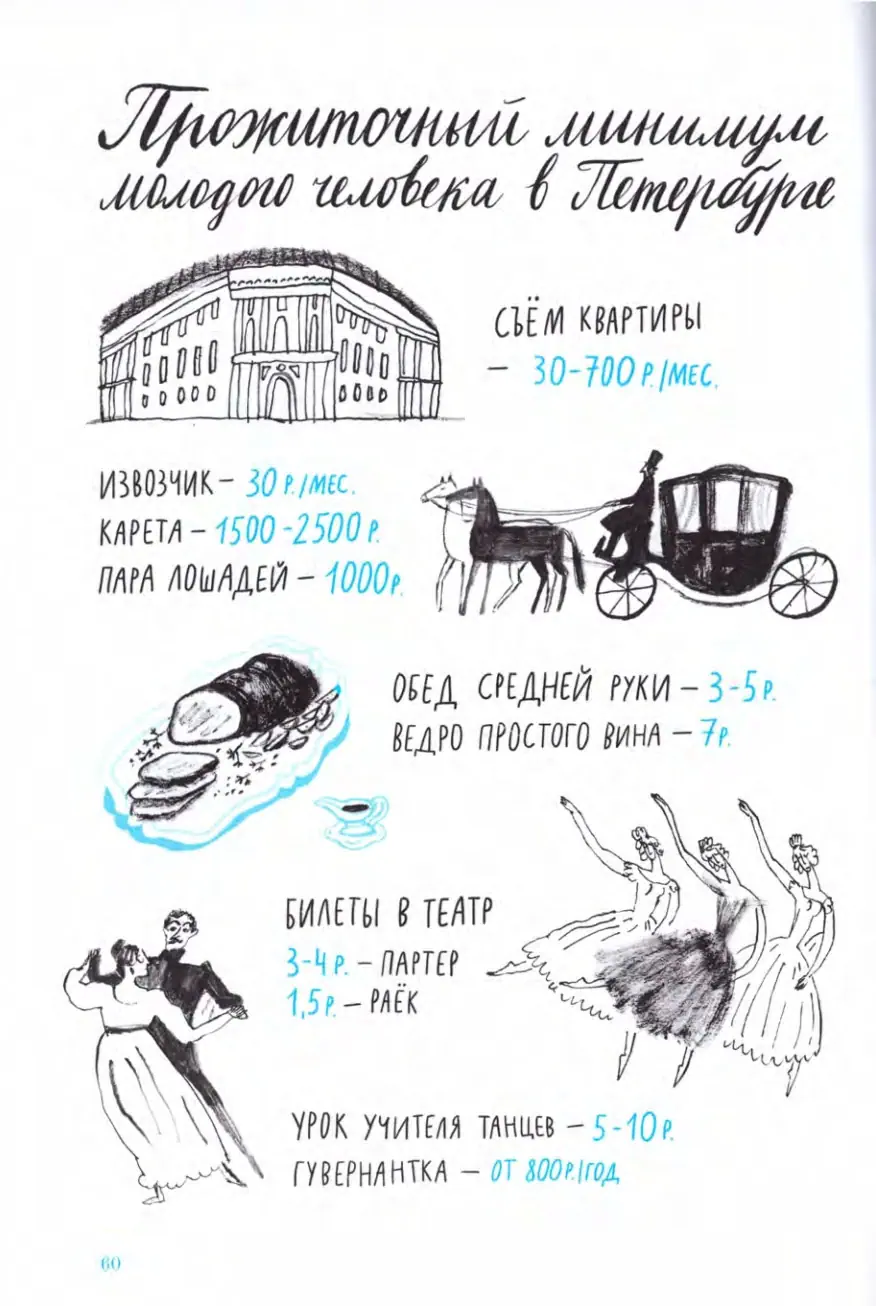 Прожиточный минимум
молодого человека в Петербурге
СЪЁМ КВАРТИРЫ
– 30-700 Р./МЕС.
ИЗВОЗЧИК – 30 Р./МЕС.
КАРЕТА – 1500-2500 Р.
ПАРА ЛОШАДЕЙ – 1000Р.
ОБЕД СРЕДНЕЙ РУКИ – 3-5 Р.
ВЕДРО ПРОСТОГО ВИНА – 7Р.
БИЛЕТЫ В ТЕАТР
3-4 Р. – ПАРТЕР
1,5 Р. – РАЁК
УРОК УЧИТЕЛЯ ТАНЦЕВ – 5-10 Р.
ГУВЕРНАНТКА – ОТ 800Р./ГОД
60